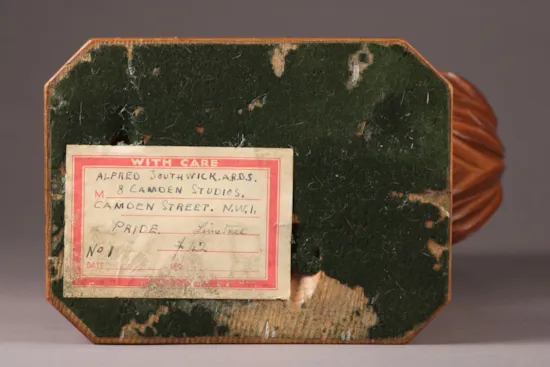 WITH CARE
ALFRED SOUTHWICK. A.R.B.S.
M 8 CAMDEN STUDIOS.
CAMDEN STREET. N.W.1.
PRIDE. Limetree
No 1 £42
DATE